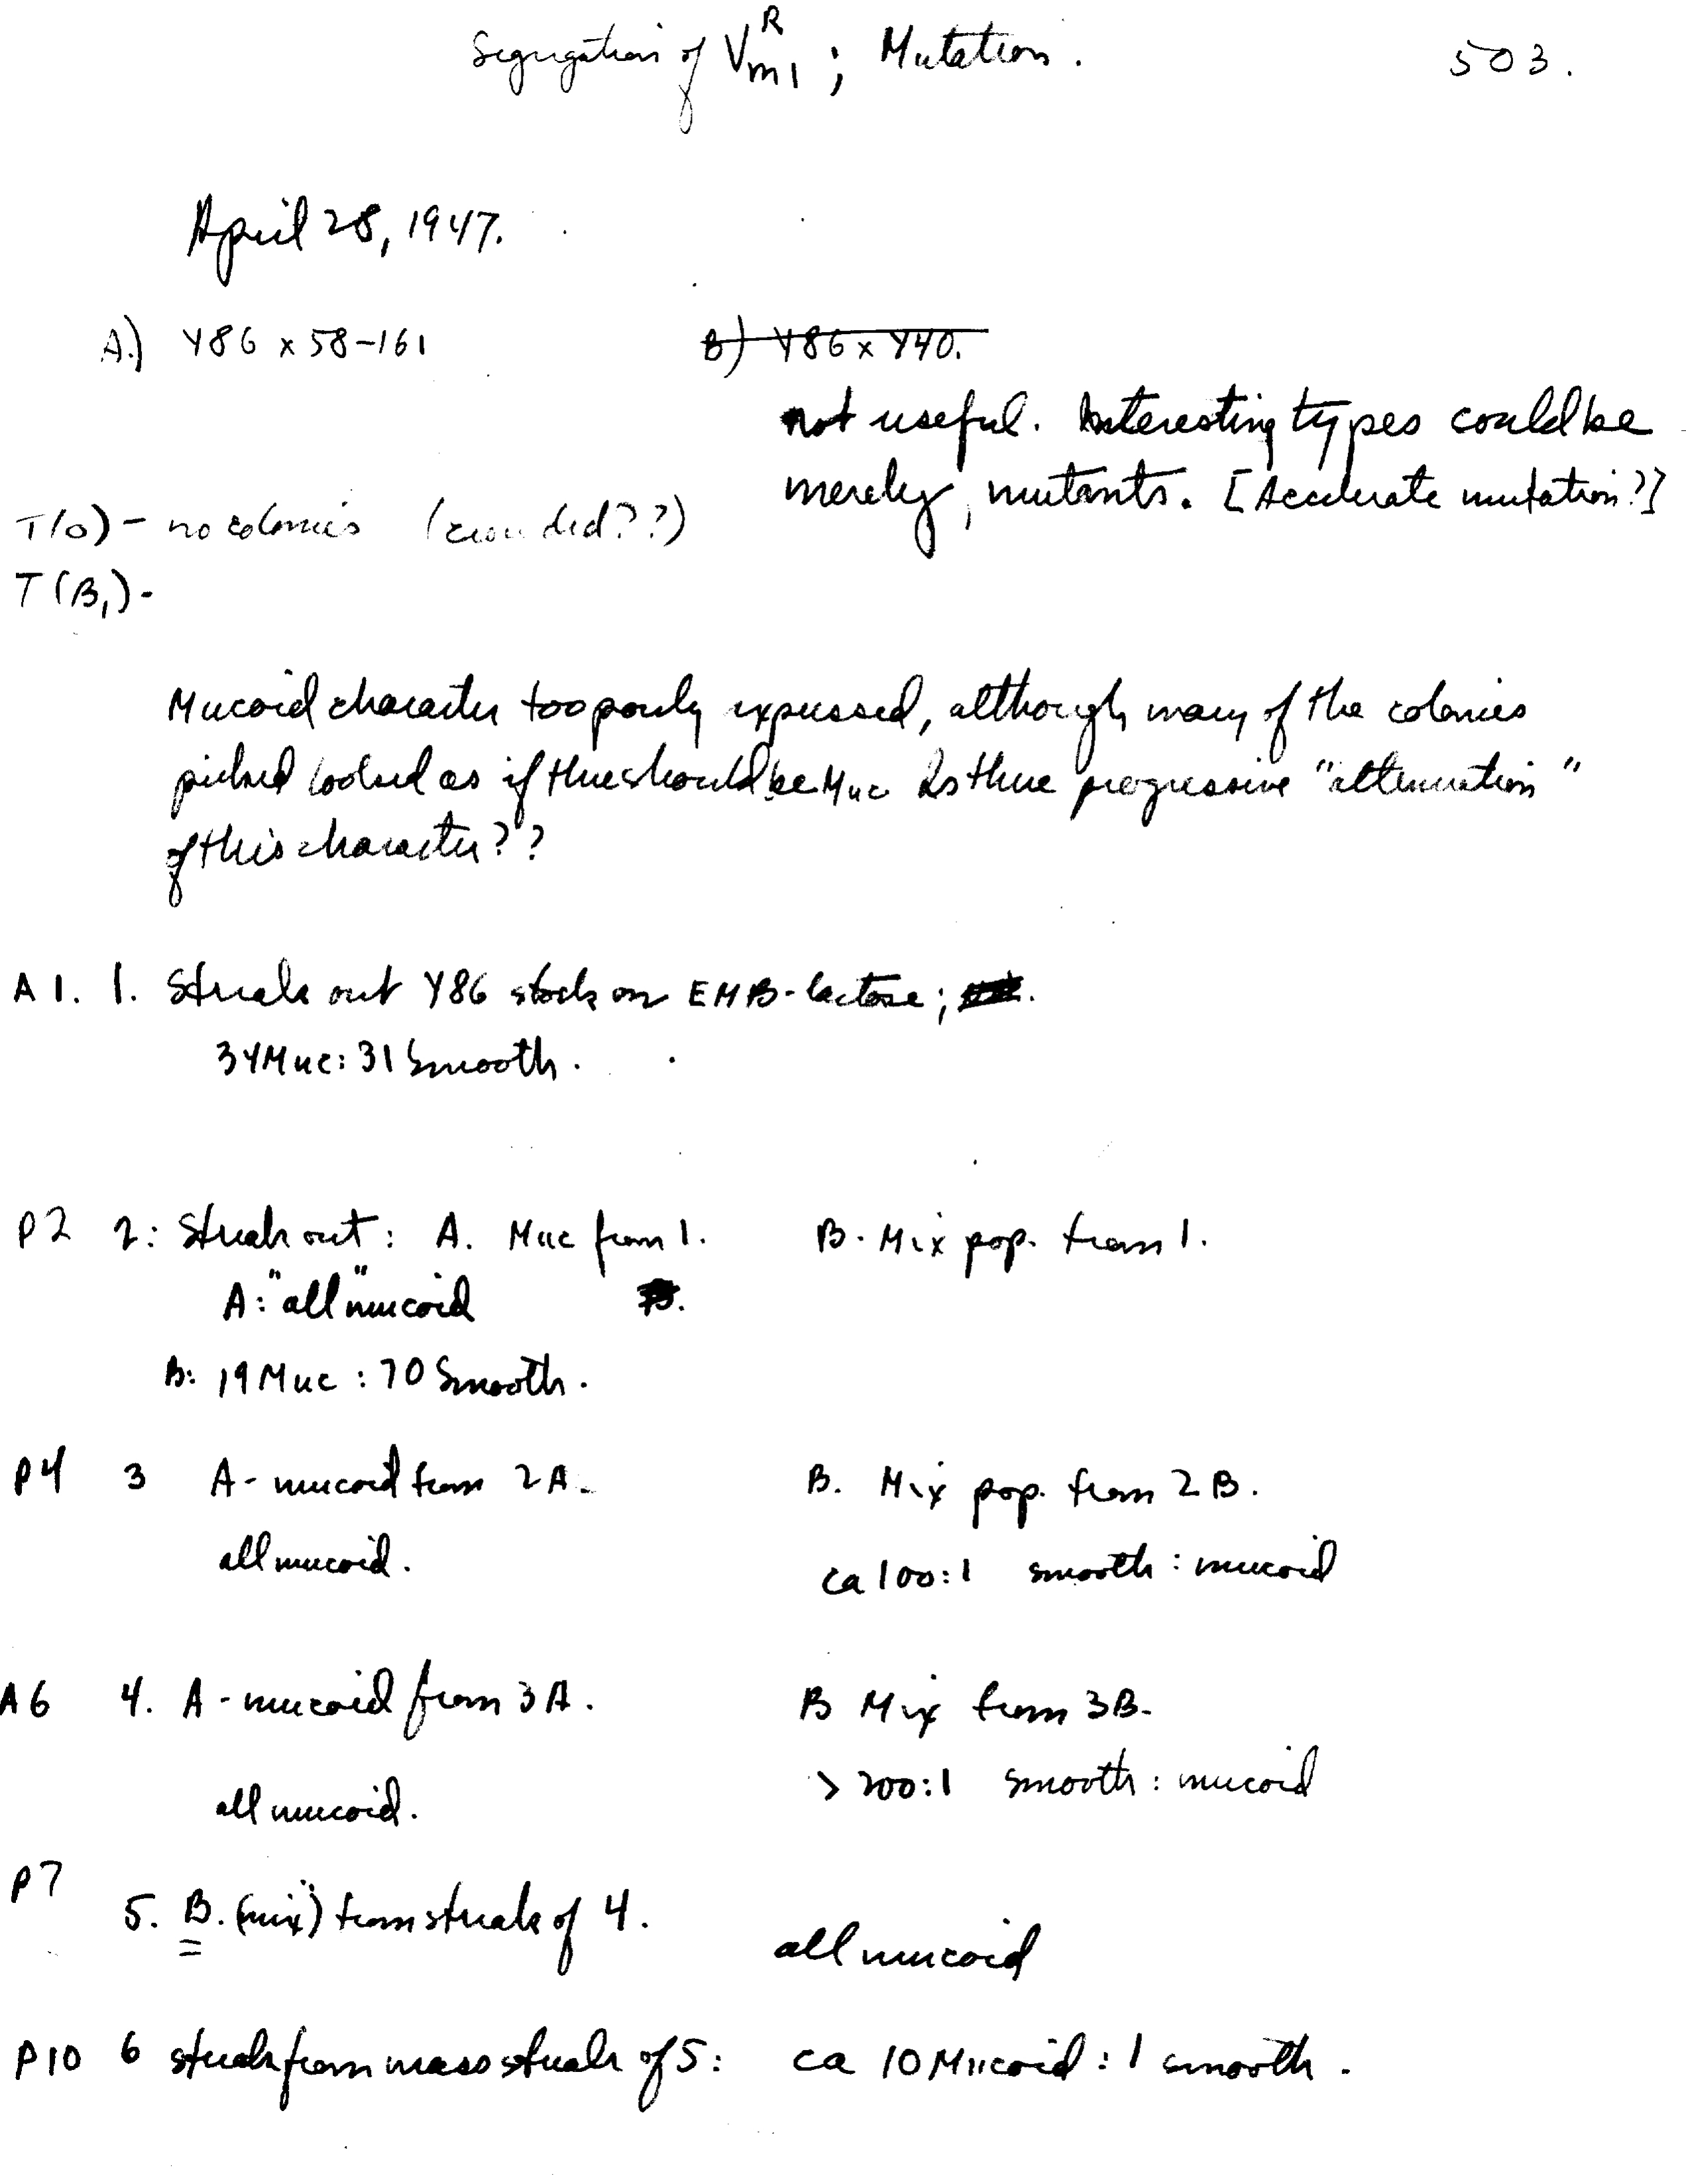 Segregation of V^R_m1 ; Mutation. 503.
April 28, 1947.
A.) Y86 x 58-161 B) Y86 x Y40.
not useful. Interesting types could be
merely, mutants. [Accelerate mutation?]
T(0) - no colonies (crowded??)
T(B1) -
Mucoid character too poorly expressed, although many of the colonies
picked looked as if there should be Muc Is there progressive "attenuation"
of this character??
A 1. 1. Streak out Y86 stock on EMB-lactose;
34 Muc: 31 Smooth.
P2 2: Streak out: A. Muc from 1. B. Mix pop. from 1.
A: "all" mucoid
B: 19 Muc : 70 Smooth.
P4 3 A - mucoid from 2A. B. Mix pop. from 2B.
all mucoid. ca 100:1 smooth : mucoid
A6 4. A - mucoid from 3A. B Mix from 3B.
all mucoid. > 200:1 smooth : mucoid
P7
5. B. (mix") from streak of 4. all mucoid
P10 6 streak from mass streak of 5: ca 10 Mucoid : 1 smooth.